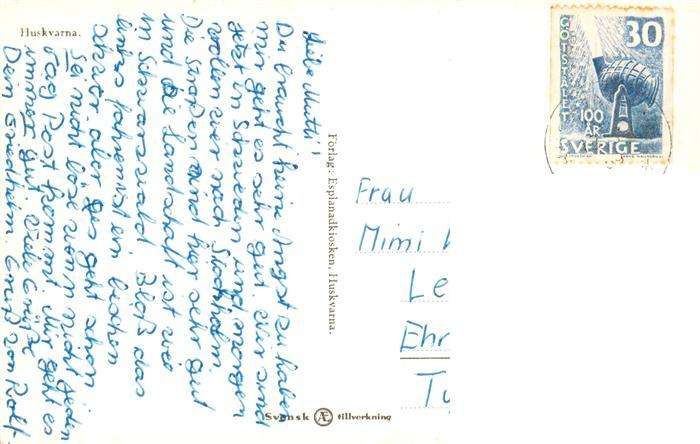 Huskvarna.
Liebe Mutti!
Du brauchst keine Angst zu haben
mir geht es sehr gut. Wir sind
jetzt in Schweden und morgen
wollen wir nach Stockholm
Die Straßen sind hier sehr gut
und die Landschaft ist wie
im Schwarzwald. Bloß das
ein bischen
aber des geht schon
Sei nicht böse wenn nicht jeden
Tag Post kommt. Mir geht es
immer gut. Viele Grüße
Dein Gruß von Rolf
Förlag: Esplanadkiosken, Huskvarna.
Svensk Æ tillverkning
GÖTSTÅLET
30
100
ÅR
SVERIGE
Frau
Mimi
Le
Ehr